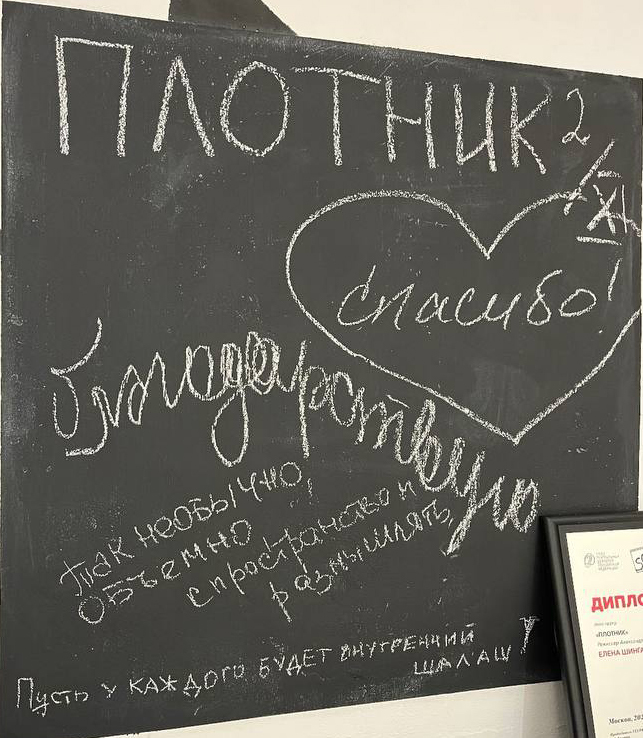 ПЛОТНИК 2/XI
спасибо!
благодарствую
так необычно,
объемно
с пространством
размышлять,
Пусть у каждого будет внутренний
шалаш!
ДИПЛО
«ПЛОТНИК»
Режиссер Александр
ЕЛЕНА ШИНГА
Москва, 202